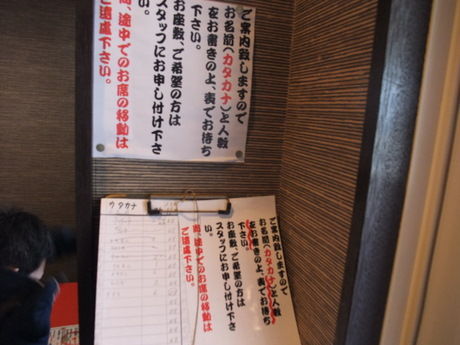 ご案内致しますので
お名前(カタカナ)と人数
をお書きの上、表でお待ち
下さい。
お座敷、ご希望の方は
スタッフにお申し付け下さ
い。
尚、途中でのお席の移動は
ご遠慮下さい。
ご案内致しますので
お名前(カタカナ)と人数
をお書きの上、表でお待ち
下さい。
お座敷、ご希望の方は
スタッフにお申し付け下さ
い。
尚、途中でのお席の移動は
ご遠慮下さい。
カタカナ